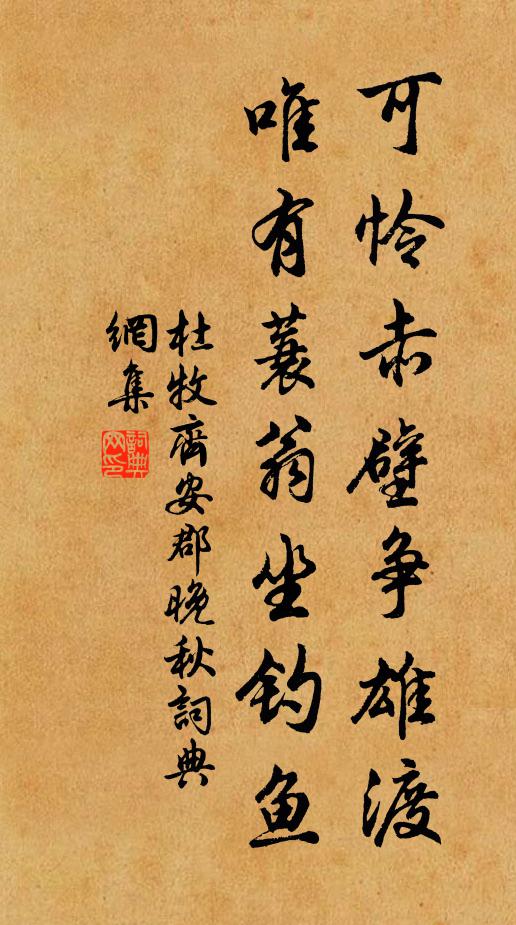 可怜赤壁争雄渡
唯有蓑翁坐钓鱼
杜牧齊安郡晚秋詞典
網集
詞典
网印